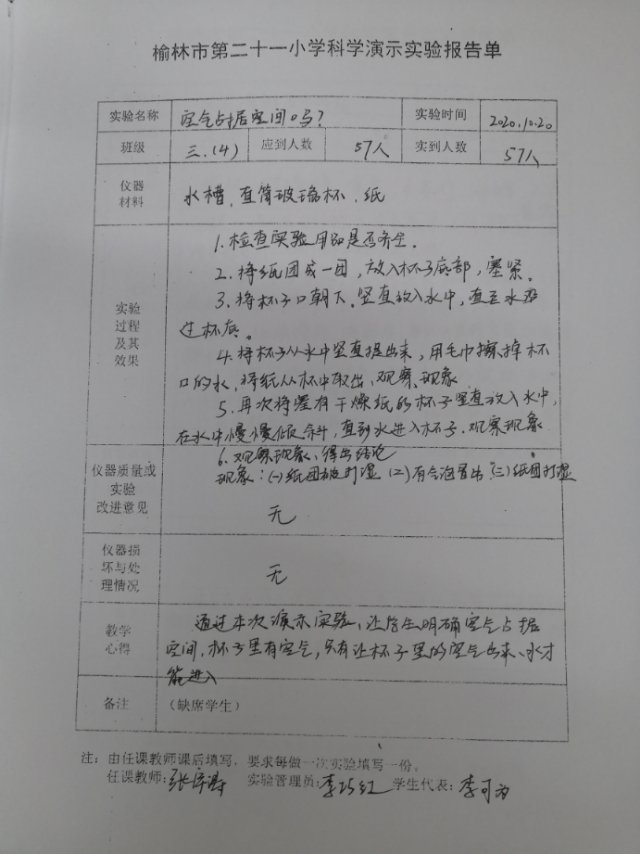 榆林市第二十一小学科学演示实验报告单
实验名称 空气占据空间吗? 实验时间 2020.10.20
班级 三.(4) 应到人数 57人 实到人数 57人
仪器
材料
水槽、直筒玻璃杯、纸
实验
过程
及其
效果
1.检查实验用品是否齐全.
2.将纸团成一团,放入杯子底部,塞紧.
3.将杯子口朝下.竖直放入水中,直至水没
过杯底.
4.将杯子从水中竖直提出来,用毛巾擦掉杯
口的水,将纸从杯中取出、观察、现象
5.再次将塞有干燥纸的杯子竖直放入水中,
在水中慢慢倾斜,直到水进入杯子.观察现象
6.观察现象、得出结论
现象:(一)纸团被打湿 (二)有气泡冒出 (三)纸团打湿
仪器质量或
实验
改进意见
无
仪器损
坏与处
理情况
无
教学
心得
通过本次演示实验、让学生明确空气占据
空间,杯子里有空气,只有让杯子里的空气出来、水才
能进入
备注 (缺席学生)
注:由任课教师课后填写,要求每做一次实验填写一份。
任课教师: 实验管理员:李巧红 学生代表:李可为